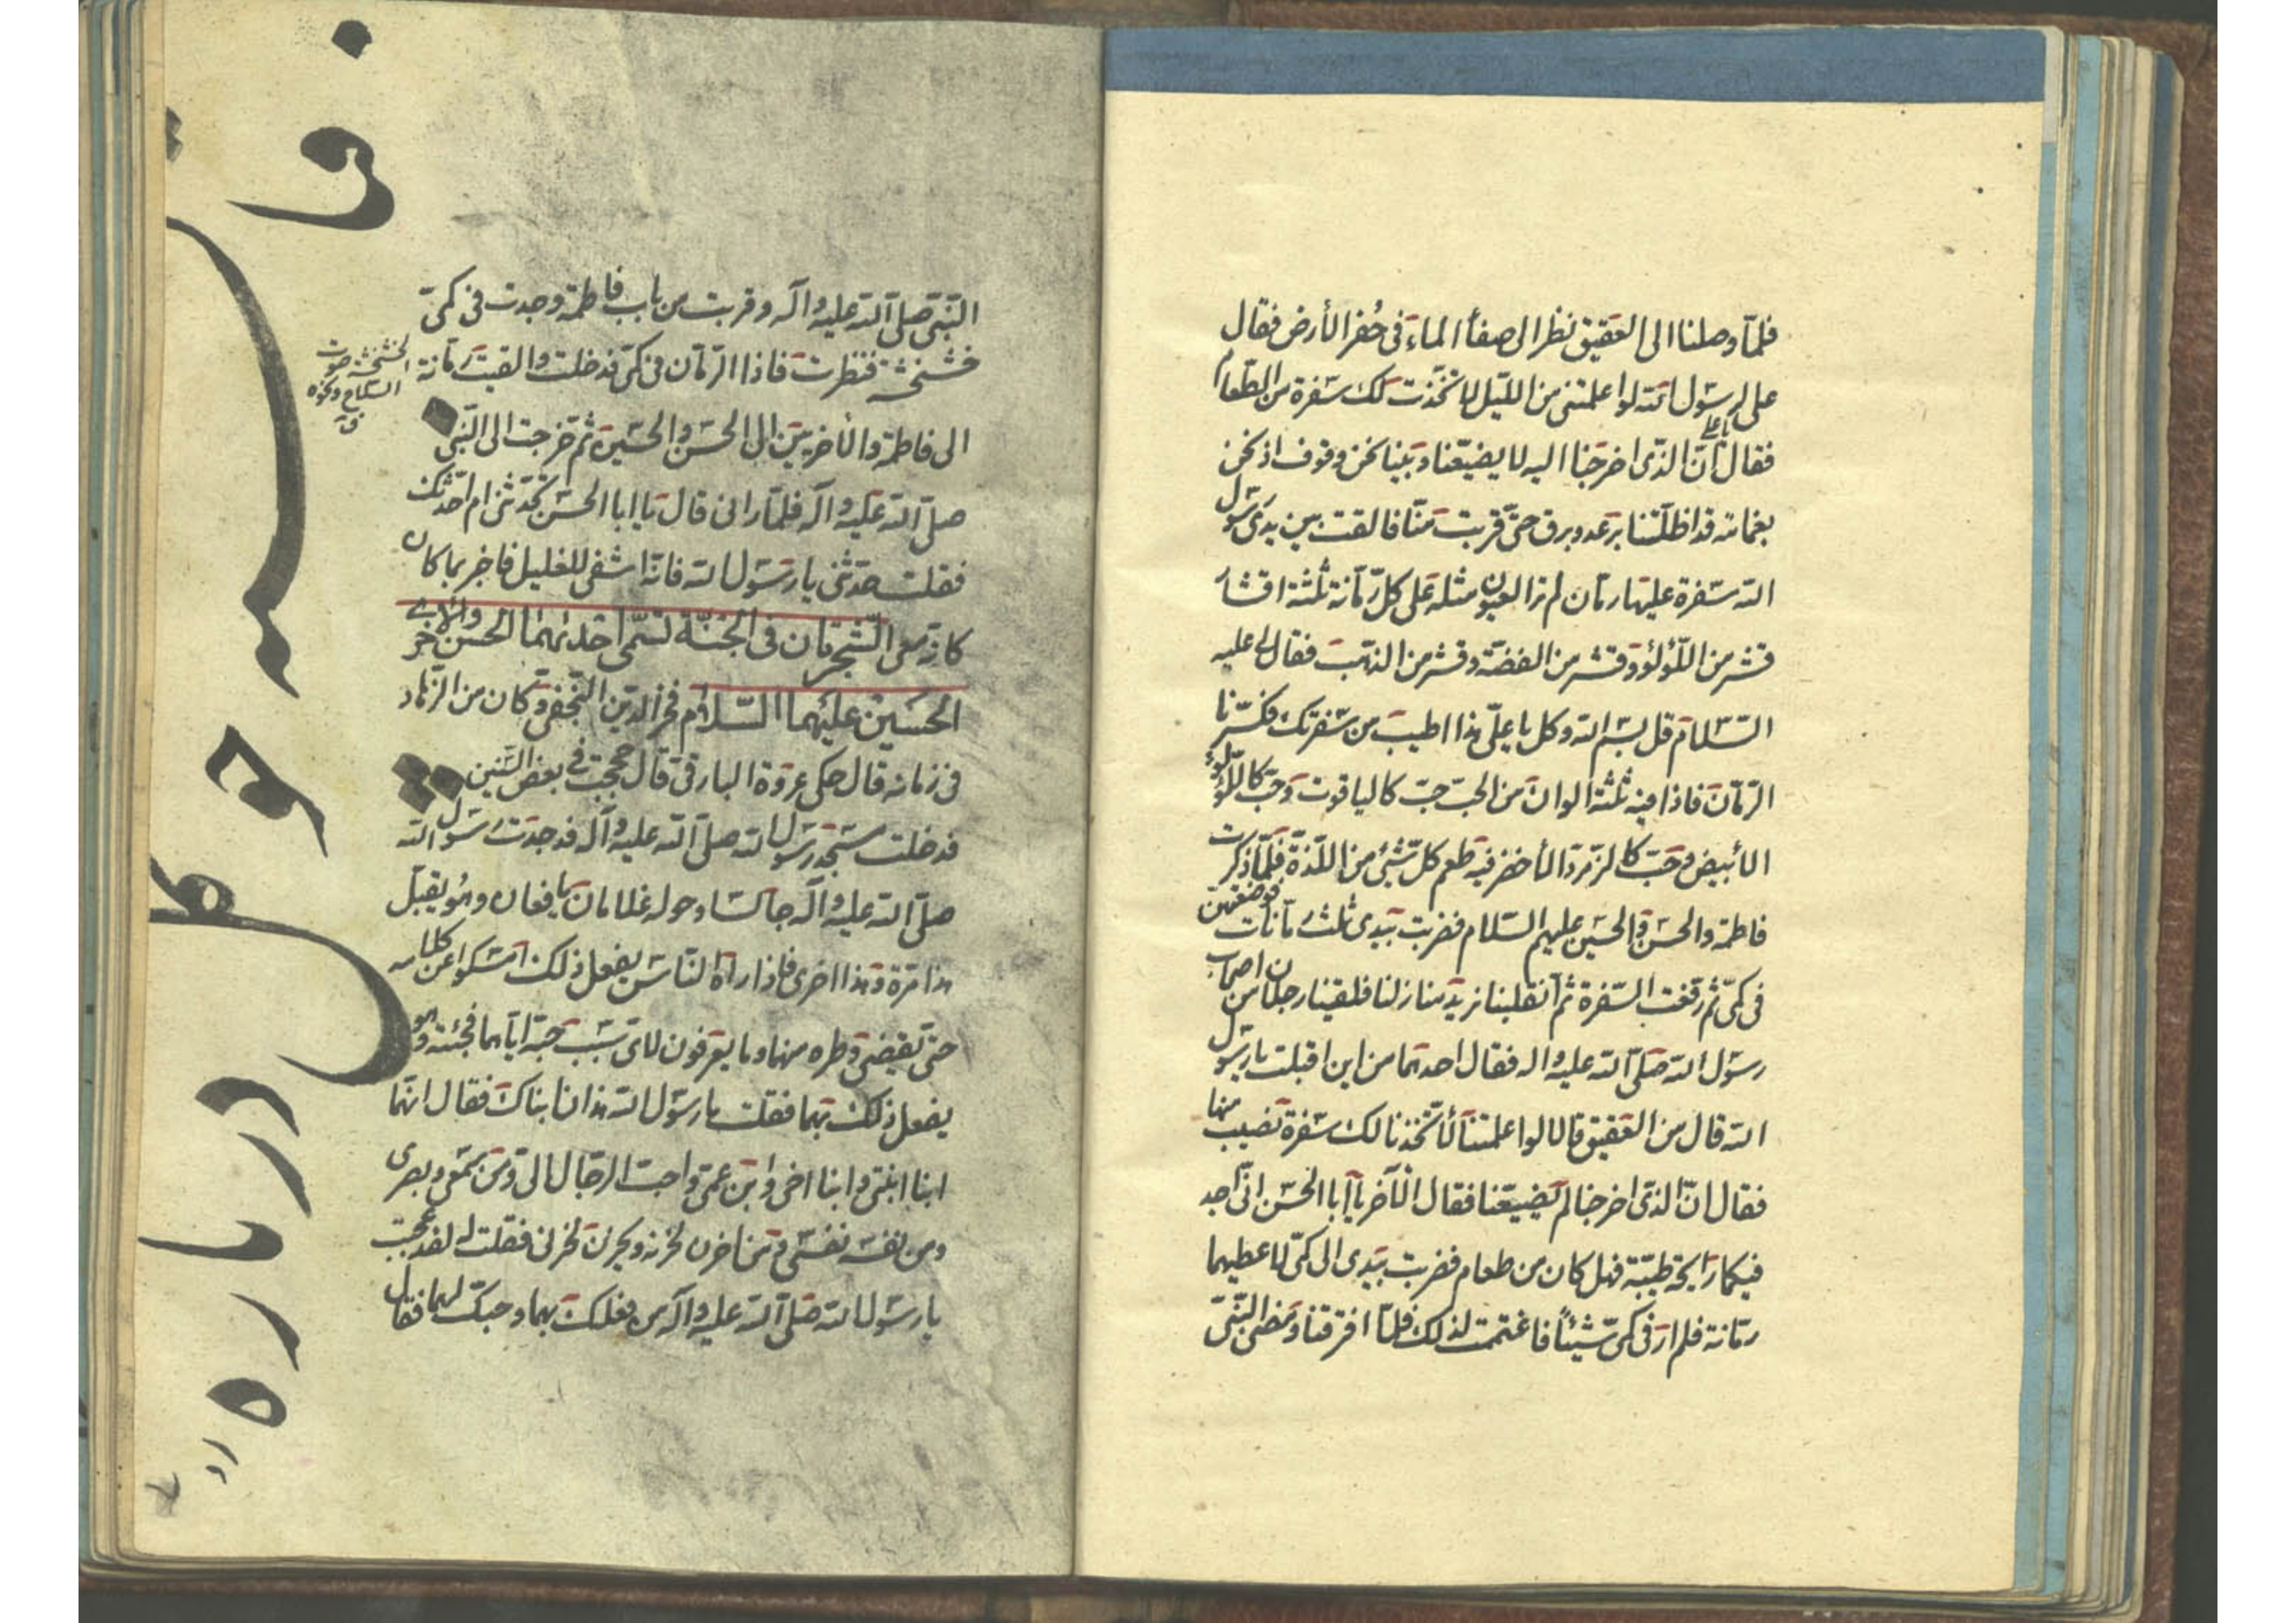 فلمّا وصلنا الى العقيق نظر الى صفاء الماء فى حُفر الأرض فقال
على يا رسول الله لو اعلمتنى من الليل لاتّخذت لك سفرة من الطّعام
فقال يا على انّ الذى اخرجنا اليه لا يضيّعنا وبينا نحن وقوف اذ نحن
بغمامة قد اظلّتنا برعد وبرق حتّى قربت منّا فالقت بين يدى رسول
الله سفرة عليها رمّان لم تر العيون مثله على كلّ رمّانة ثلثة اقشار
قشر من اللؤلؤ وقشر من الفضّة وقشر من الذهب فقال لى عليه
السّلام قل بسم الله وكل يا علىّ هذا اطيب من سفرتك فكسّرنا
الرّمّان فاذا فيه ثلثة الوان من الحبّ حبّ كالياقوت وحبّ كاللؤلؤ
الأبيض وحبّ كالزمرّد الأخضر فيه طعم كلّ شىء من اللذّة فلمّا ذكرت
فاطمة والحسن والحسين عليهم السّلام فضربت بيدى ثلث رمّانات فوضعتهنّ
فى كمّى ثم رفعت السّفرة ثم انقلبنا نريد منازلنا فلقينا رجلان من اصحاب
رسول الله صلّى الله عليه واله فقال احدهما من اين اقبلت يا رسول
الله قال من العقيق قالا لو اعلمتنا لاتّخذنا لك سفرة تصيب منها
فقال انّ الذى اخرجنا لم يضيّعنا فقال الآخر يا أبا الحسن انّى اجد
فيكما رايحة طيّبة فهل كان من طعام فضربت بيدى الى كمّى لاعطيهما
رمّانة فلم ار فى كمّى شيئًا فاغتممت لذلك فلمّا افترقنا ومضى النبىّ
النبىّ صلى الله عليه واله وقربت من باب فاطمة وجدت فى كمّى
خشخشة فنظرت فاذا الرّمّان فى كمّى فدخلت والقيت رمّانة
الى فاطمة والأخريين الى الحسن والحسين ثم خرجت الى النبى
صلّى الله عليه واله فلمّا رانى قال يا ابا الحسن تحدّثنى ام احدّثك
فقلت حدّثنى يا رسول الله فانّه اشفى للغليل فاخبر بما كان
الشجرتان فى الجنّة تسمّى احديهما الحسن والاخرى
الحسين عليهما السّلام فخر الدين النّجفى وكان من الزهاد
فى زمانه قال حكى عروة البارقى قال حججت فى بعض السّنين
فدخلت مسجد رسول الله صلى الله عليه واله فوجدت رسول الله
صلّى الله عليه واله جالسا وحوله غلامان يافعان وهو يقبّل
هذا مرّة وهذا اخرى فاذا راه النّاس يفعل ذلك امسكوا عن كلامه
حتّى يقضى وطره منهما وما يعرفون لاىّ سبب حبّه ايّاهما فجئته وهو
يفعل ذلك بهما فقلت يا رسول الله هذان ابناك فقال انّهما
ابنا ابنتى وابنا اخى وابن عمى واحبّ الرجال الىّ ومن سمعى وبصرى
ومن نفسه نفسى ومن احزن لحزنه ويحزن لحزنى فقلت له لقد عجبت
يا رسول الله صلى الله عليه واله من فعلك بهما وحبّك لهما فقال
الخشخشة صوت
السّلاح ونحوه
ق
قاسم
درباره